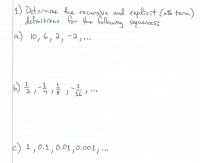 1) Determine the recursive and explicit (nth term)
definitions for the following sequences:
a) 10, 6, 2, -2, ...
b) 1/2, -1/4, 1/8, -1/16, ...
c) 1, 0.1, 0.01, 0.001, ...